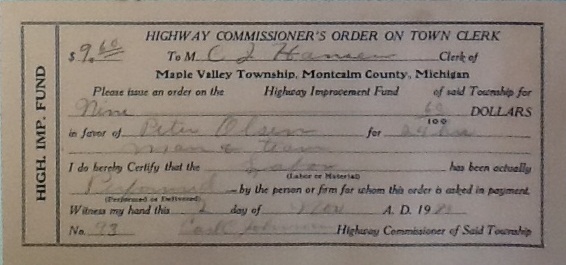 HIGH. IMP. FUND
HIGHWAY COMMISSIONER'S ORDER ON TOWN CLERK
$ 9.60 To M C J Hansen Clerk of
Maple Valley Township, Montcalm County, Michigan
Please issue an order on the Highway Improvement Fund of said Township for
Nine 60/100 DOLLARS
in favor of Peter Olsen for 24 hrs
man & team
I do hereby Certify that the Labor has been actually
(Labor or Material)
Performed by the person or firm for whom this order is asked in payment.
(Performed or Delivered)
Witness my hand this 2 day of Nov A. D. 19
No. 93 Earl Johnson Highway Commissioner of Said Township